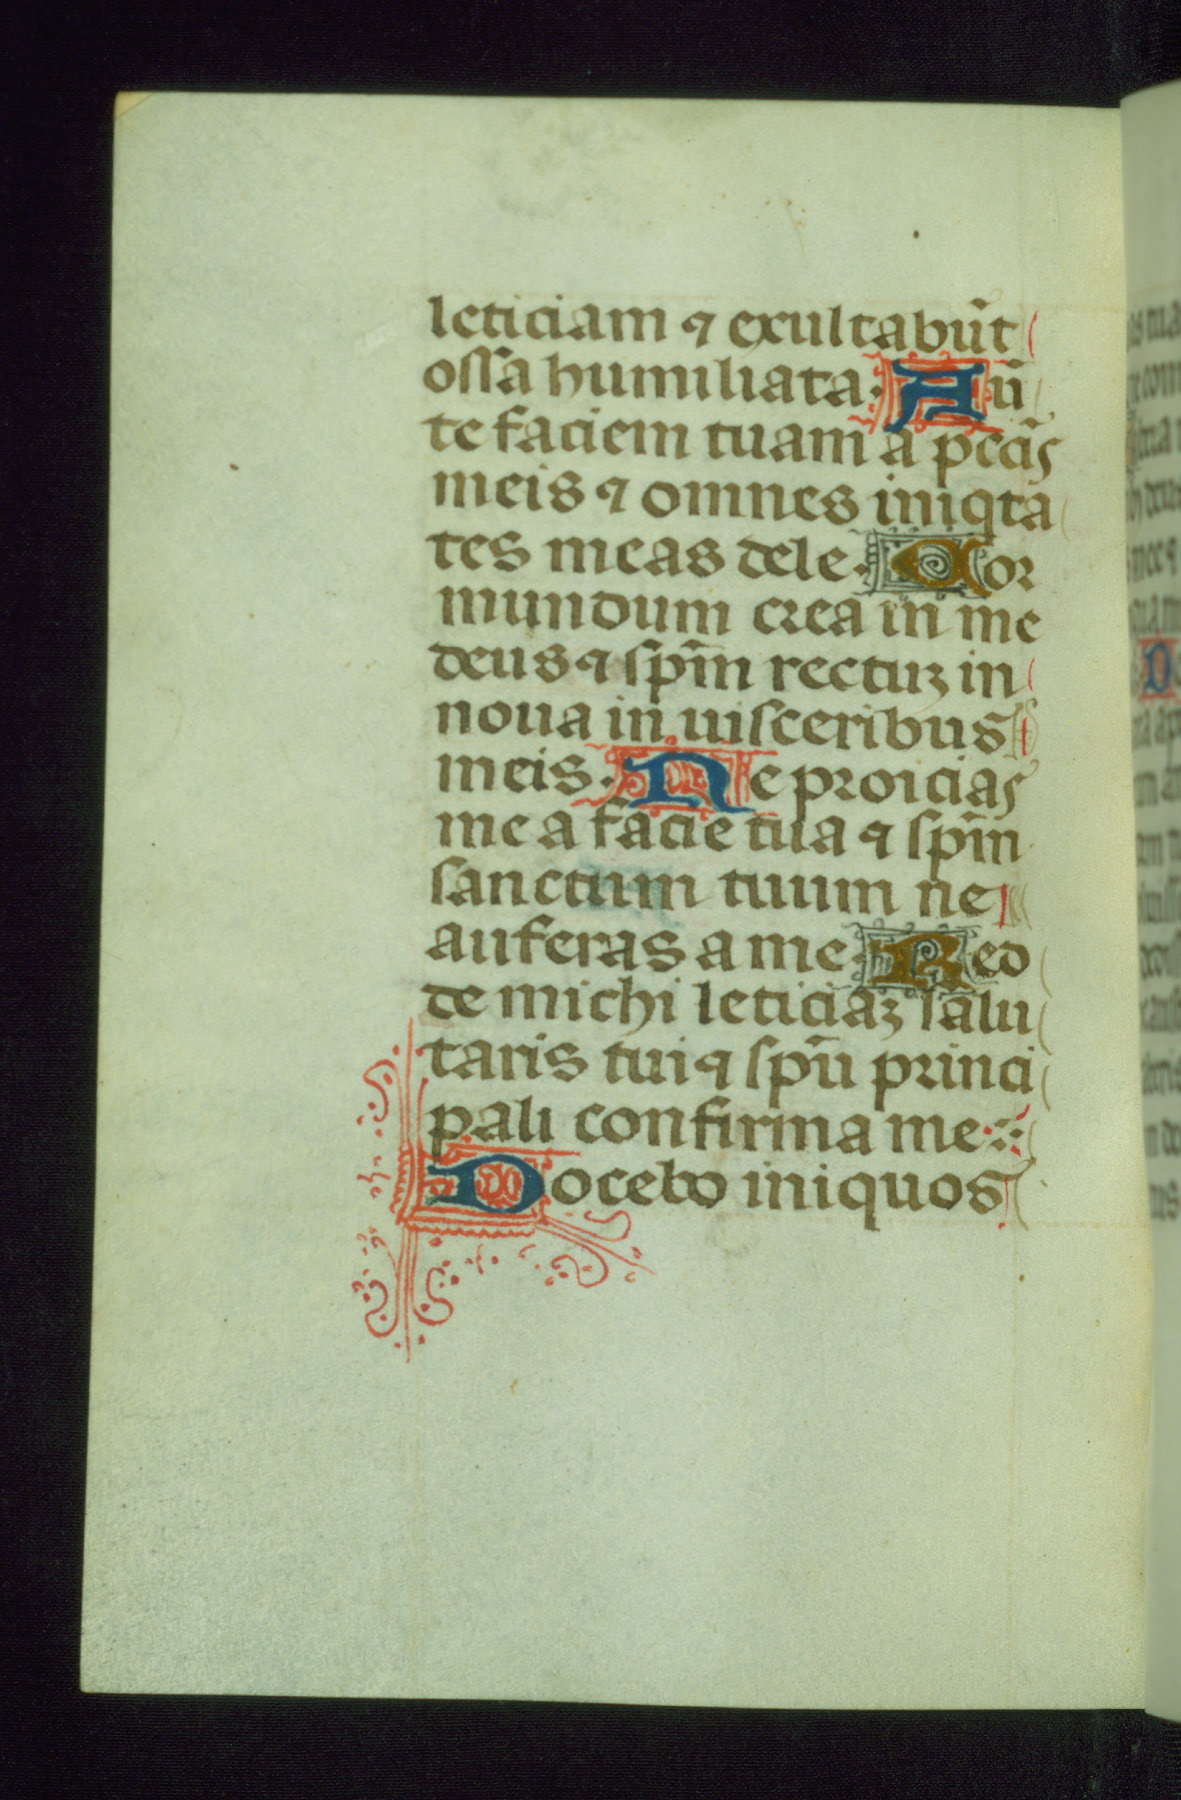 leticiam ⁊ exultabūt
ossa humiliata. Aū
te faciem tuam a pecīs
meis ⁊ omnes iniqta
tes meas dele. Cor
mundum crea in me
deus ⁊ spm̄ rectuꝫ in
noua in uisceribus
meis. Ne proicias
me a facie tua ⁊ spm̄
sanctum tuum ne
auferas a me. Red
de michi leticiaꝫ salu
taris tui ⁊ spū princi
pali confirma me
Docebo iniquos